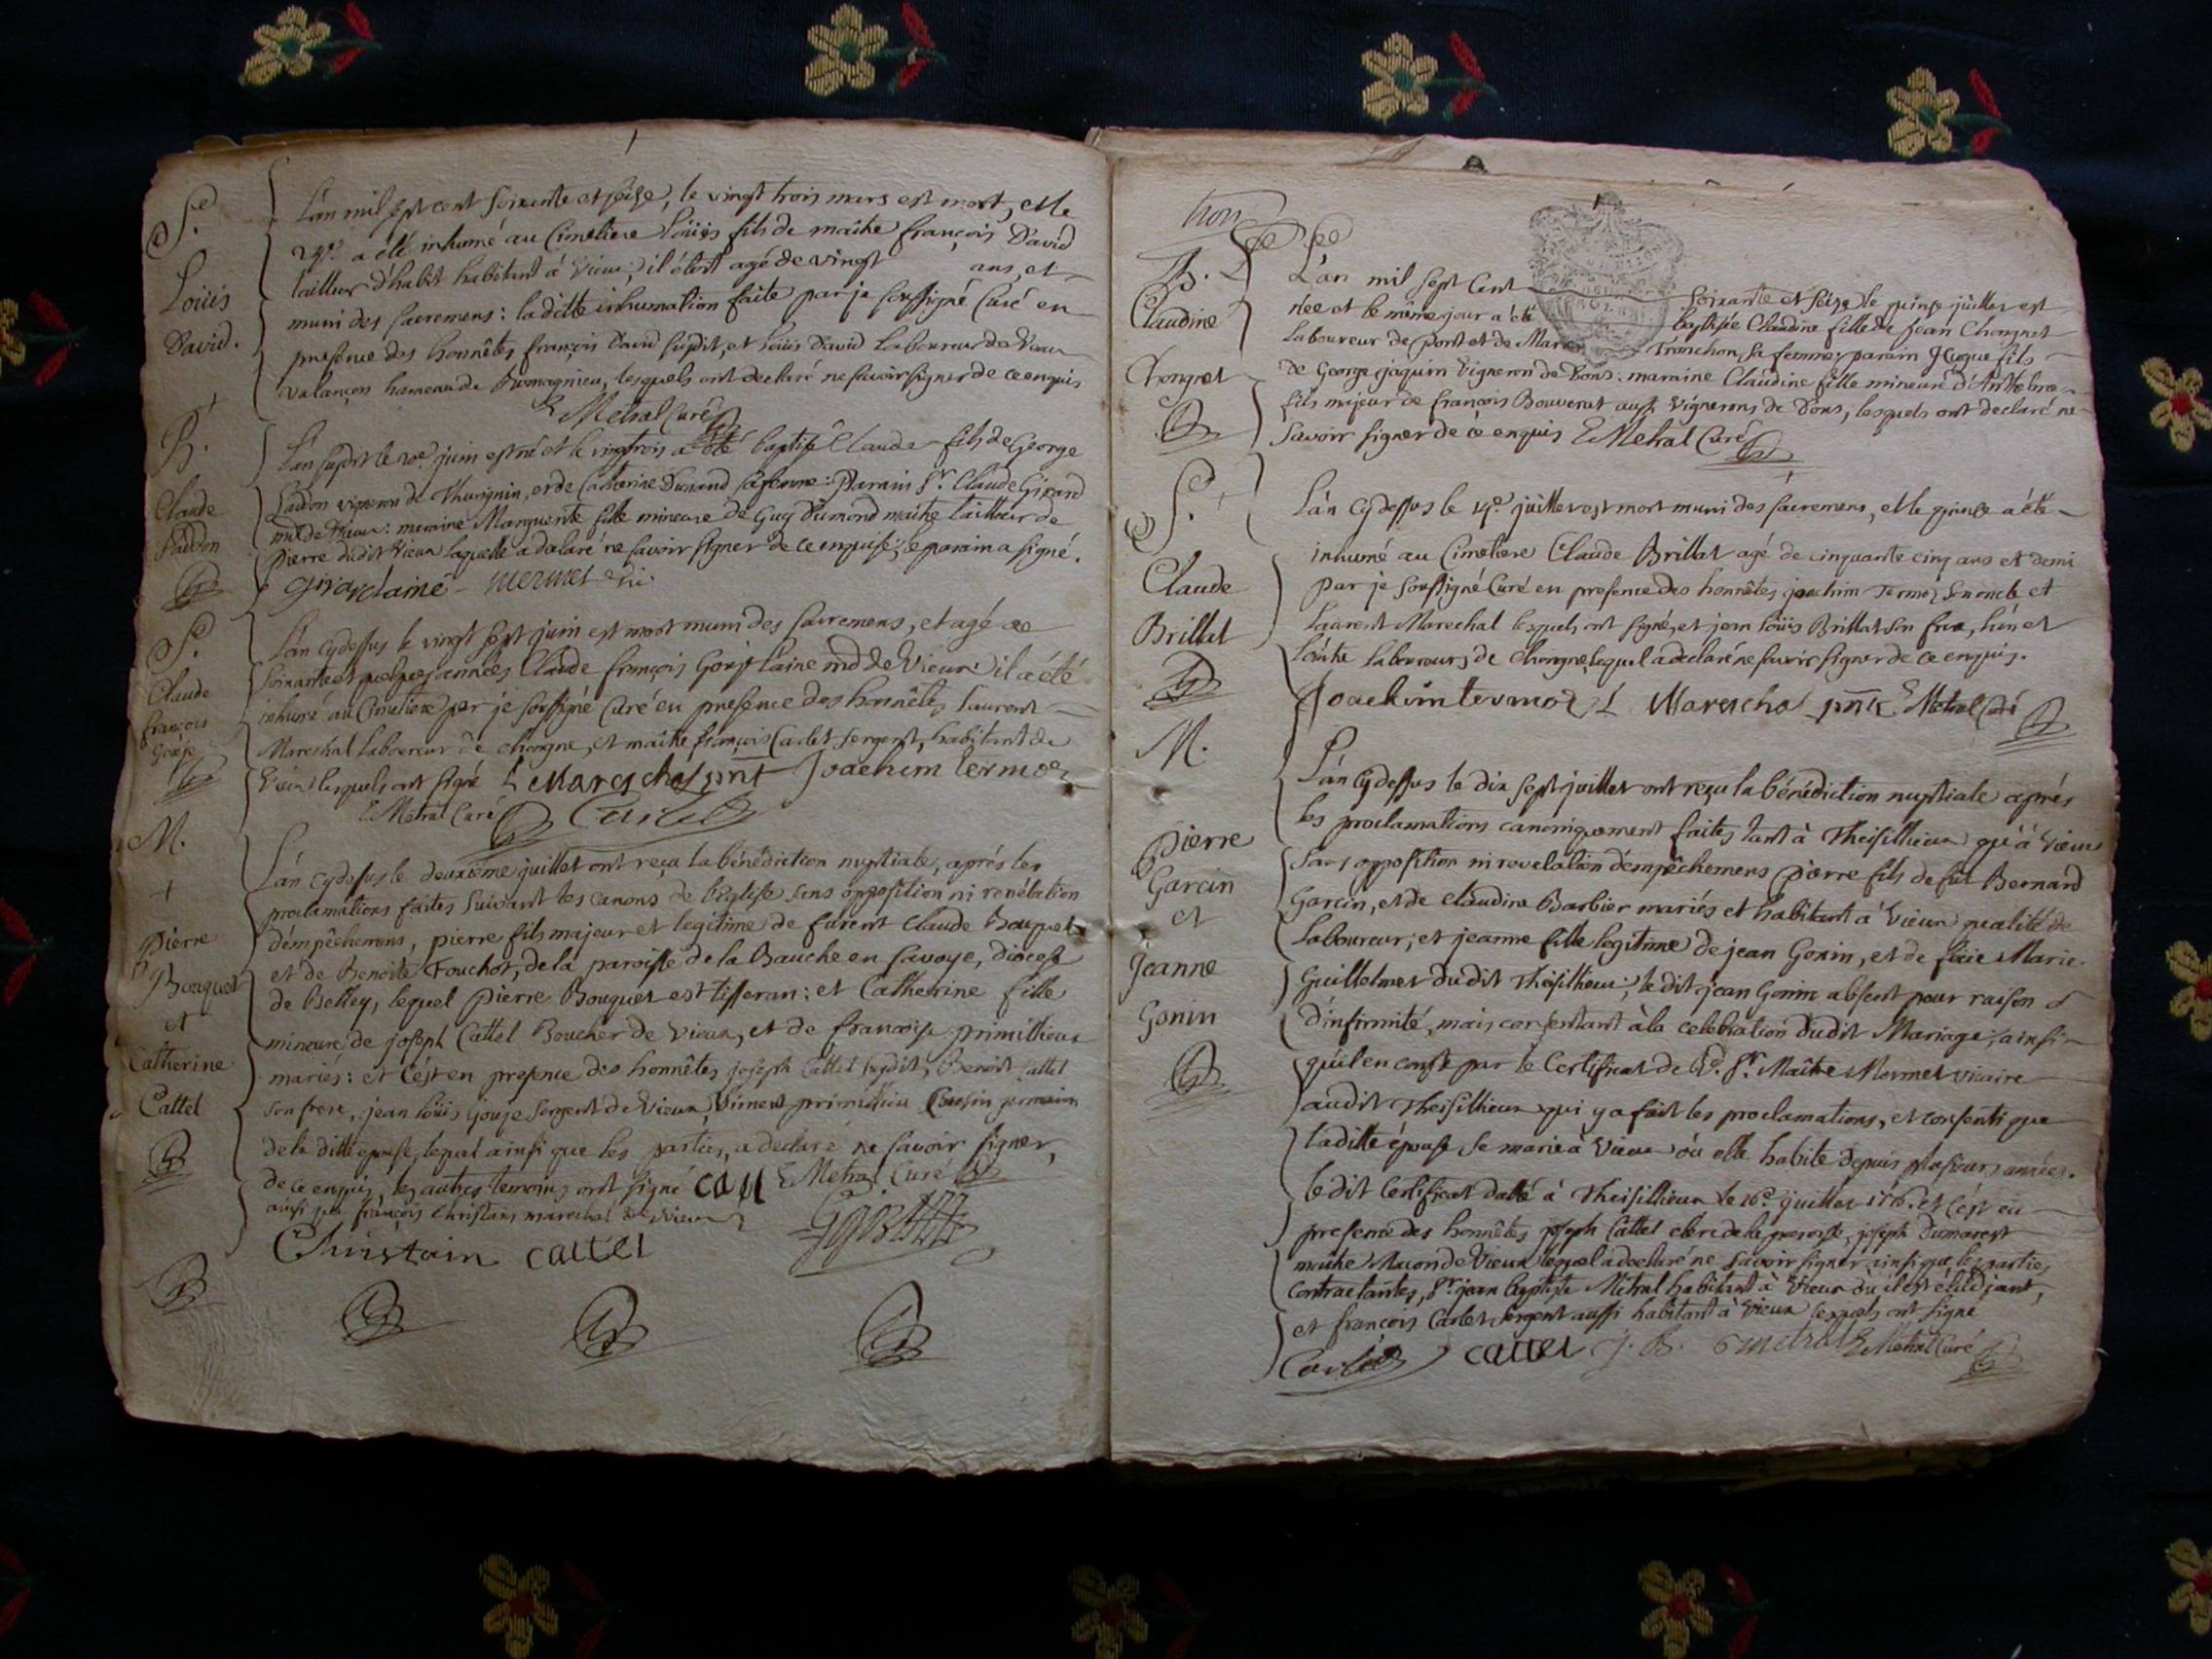 S.re
Loüis
David.
L'an mil sept cent soixante et seize, le vingt trois mars est mort, et le
24e. a été inhumé au Cimetiere Loüis fils de maître françois David
tailleur d'habit habitant à Vieu; il étoit agé de vingt ans, et
muni des sacremens: la ditte inhumation faite par je soussigné Curé en
presence des honnêtes françois David susdit, et Loüis David Laboureur de
valançon hameau de Romagnieu, lesquels ont declaré ne savoir signer de ce enquis
Metral Curé
B.
Claude
L'an susdit le 20e juin est né et le vingt trois a été baptisé Claude fils de George
vigneron de Thurignin, et de Catherine Dumond sa femme: Parain Sr. Claude Girard
md de Vieu: maraine Marguerite fille mineure de Guy Dumond maître tailleur de
Pierre dudit Vieu laquelle a declaré ne savoir signer de ce enquise; le parain a signé.
Girard ainé - mermet
S.re
Claude
françois
Gouje
L'an cydessus le vingt sept juin est mort muni des sacremens, et agé de
soixante et quelques années Claude françois Gouje l'aine md de Vieu; il a été
inhumé au Cimetiere par je soussigné Curé en presence des honnêtes Laurent
Marechal laboureur de chongne, et maître françois Carlet sergent, habitant de
Vieu lesquels ont signé L Mareschal pnt Joachim termoz
Metral Curé Carlet
M.
+
Pierre
Bouquet
et
Catherine
Cattel
L'an cydessus le deuxième juillet ont reçu la bénédiction nuptiale, aprés les
proclamations faites suivant les canons de l'Eglise sans opposition ni revélation
d'empêchemens, pierre fils majeur et legitime de furent Claude Bouquet
et de Benoite Fouchot, de la paroisse de la Bauche en Savoye, diocese
de Belley, lequel Pierre Bouquet est tisseran: et Catherine fille
mineure de joseph Cattel Boucher de Vieu, et de françoise primillieu
mariés: et c'est en presence des honnêtes joseph Cattel susdit, Benoit Cattel
son frere, jean loüis Gouje sergent de Vieu, primillieu Cousin germain
de la ditte epouse, lequel ainsi que les parties, a declaré ne savoir signer,
de ce enquis, les autres temoins ont signé Metral Curé
ainsi que françois Christain marechal de Vieu
Christain cattel
B.
Claudine
Chongnet
L'an mil sept Cent soixante et seize le quinze juillet est
née et le même jour a été baptisée Claudine fille de Jean Chongnet
Laboureur de pont et de Marie Tronchon sa femme: parain fils
de George jaquin Vigneron de Dons: maraine Claudine fille mineure d'Anthelme
fils majeur de françois Bouverat aussi Vignerons de Dons, lesquels ont declaré ne
savoir signer de ce enquis Metral Curé
S.re
Claude
Brillat
L'an cydessus le 14e. juillet est mort muni des sacremens, et le quinze a été
inhumé au Cimetiere Claude Brillat agé de cinquante cinq ans et demi
par je soussigné Curé en presence des honnêtes joachim Termoz son oncle et
Laurent Marechal lesquels ont signé, et jean loüis Brillat son frere, l'un et
l'autre laboureurs de Chongne, lequel a declaré ne savoir signer de ce enquis.
Joachim termoz L Mareschal pnt Metral Curé
M.
Pierre
Garcin
et
Jeanne
Gonin
L'an cydessus le dix sept juillet ont reçu la bénédiction nuptiale aprés
les proclamations canoniquement faites tant à Theisillieu qu'à Vieu
sans opposition ni revelation d'empêchemens pierre fils de fut Bernard
Garcin, et de claudine Barbier mariés et habitant à Vieu qualité de
Laboureur; et jeanne fille legitime de jean Gonin, et de fuie Marie
Guillelmet dudit Theisillieu, le dit jean Gonin absent pour raison
d'infirmité, mais consentant à la celebration dudit Mariage, ainsi
qu'il en conste par le Certificat de Sr. Maître Mermet vicaire
audit Theisillieu qui y a fait les proclamations, et consenti que
laditte épouse se marie à Vieu où elle habite depuis plusieurs années.
le dit Certificat datté à Theisillieu le 16e. juillet 1776. et c'est en
presence des honnêtes joseph Cattel clerc de la paroisse, joseph Dumarest
maître Macon de Vieu lequel a declaré ne savoir signer ainsi que les parties
contractantes, Sr. jean baptiste Metral habitant à Vieu où il est etudiant,
et francois Carlet sergent aussi habitant à Vieu lesquels ont signé
Carlet cattel J. B. metral Metral Curé